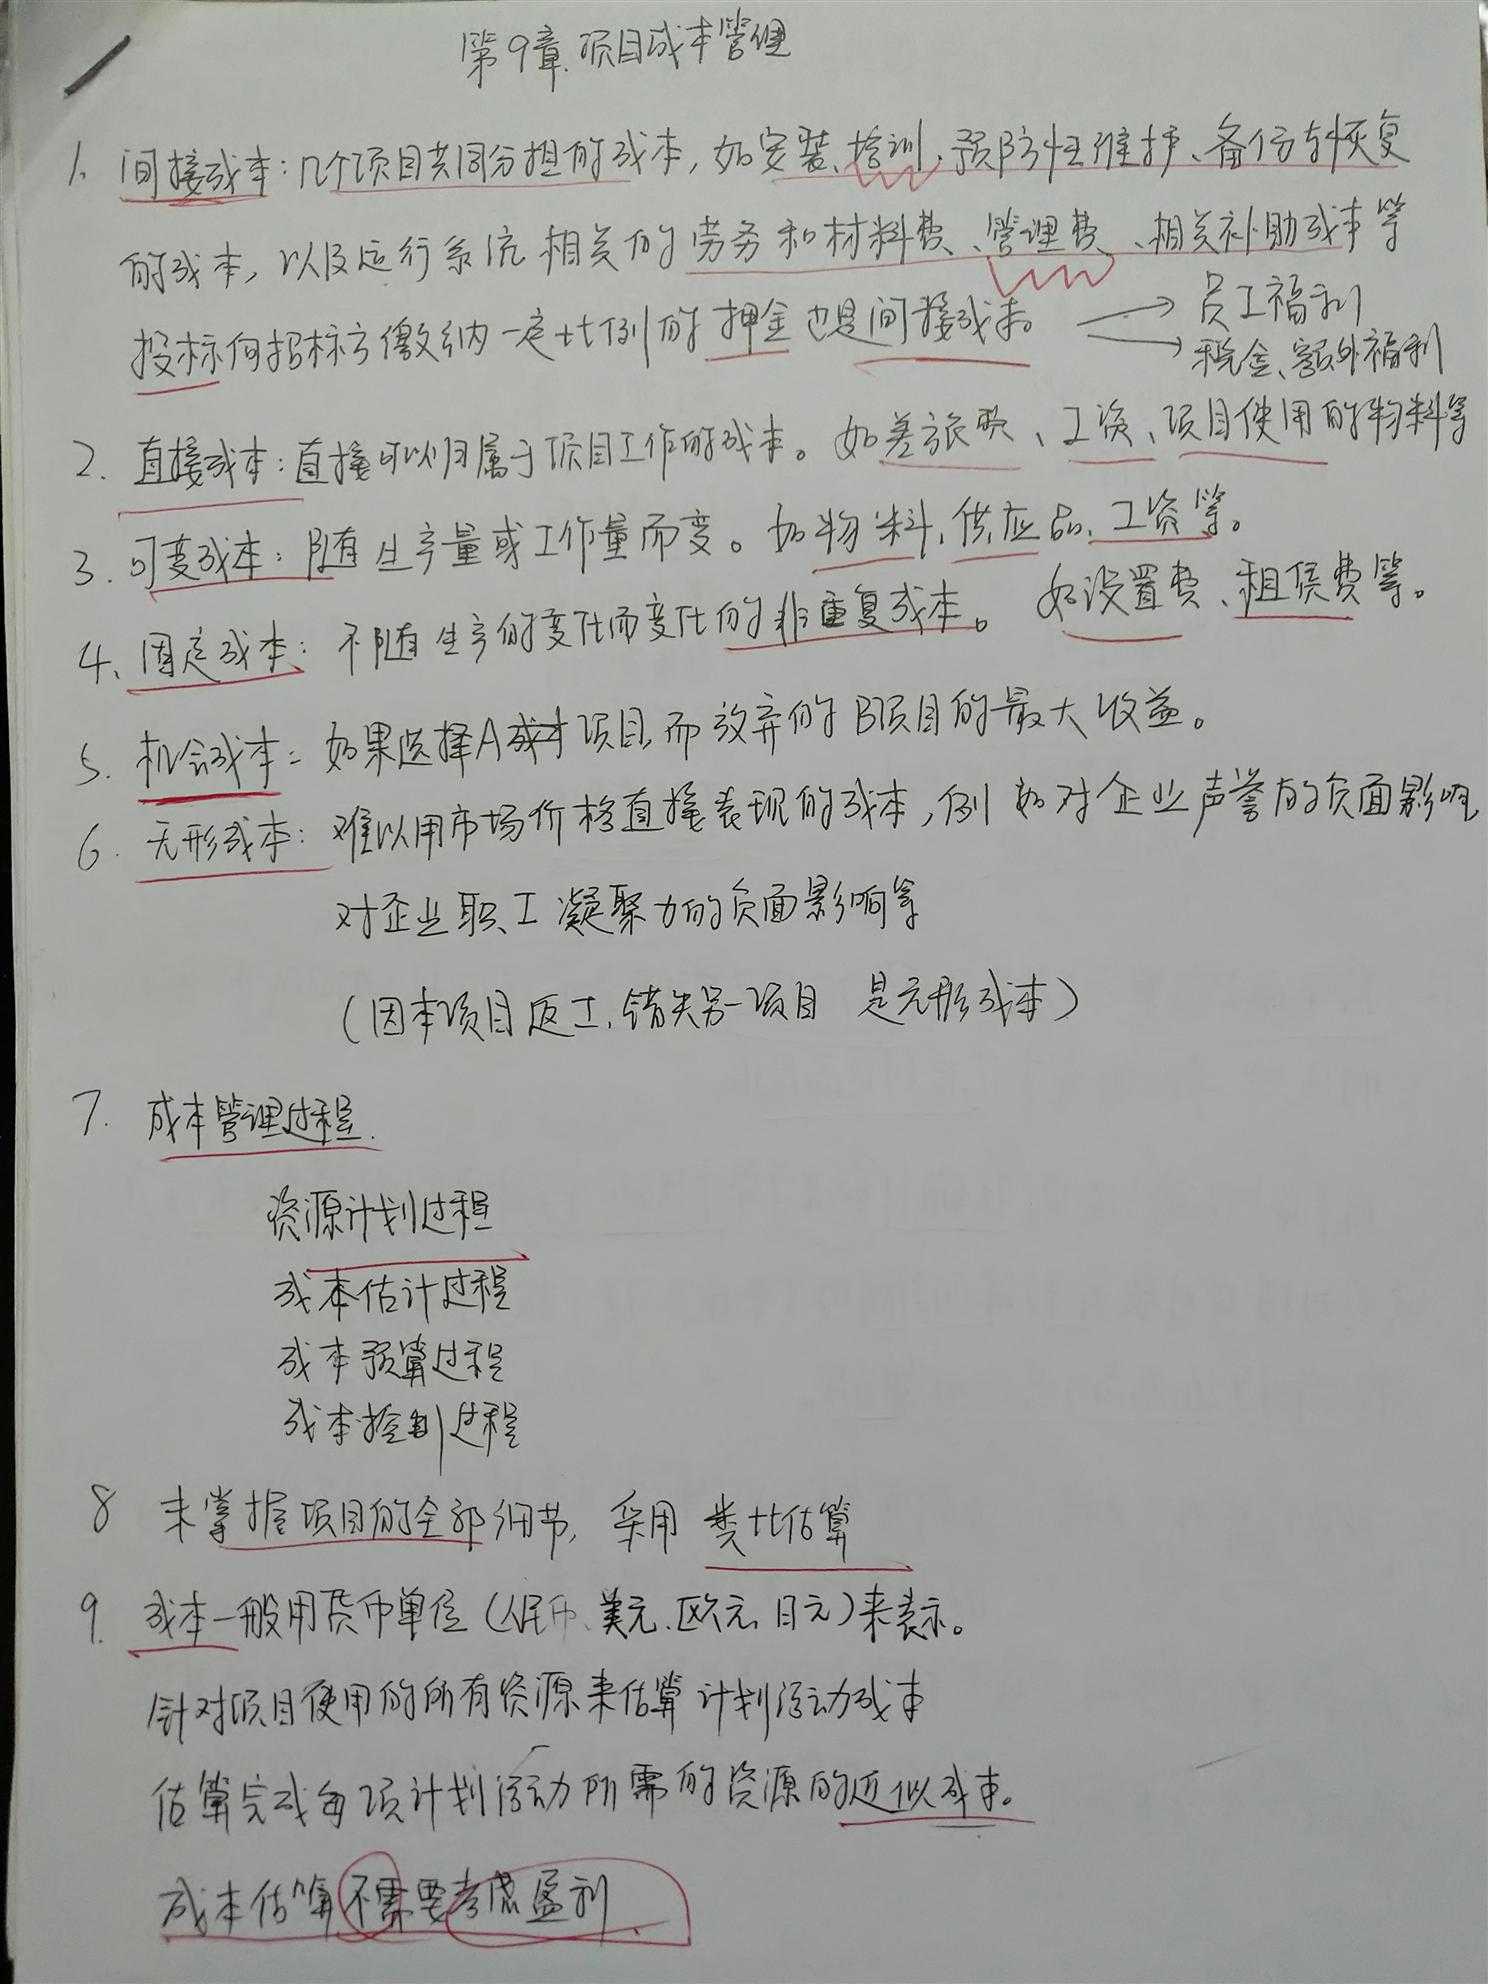 第9章.项目成本管理
1、间接成本：几个项目共同分担的成本，如安装、培训、预防性维护、备份与恢复
的成本，以及运行系统相关的劳务和材料费、管理费、相关补助成本等
投标向招标方缴纳一定比例的押金也是间接成本。
员工福利
税金、额外福利
2、直接成本：直接可以归属于项目工作的成本。如差旅费、工资、项目使用的物料等
3、可变成本：随生产量或工作量而变。如物料、供应品、工资等。
4、固定成本：不随生产的变化而变化的非重复成本。如设置费、租赁费等。
5.机会成本：如果选择A项目而放弃的B项目的最大收益。
6.无形成本：难以用市场价格直接表现的成本，例如对企业声誉的负面影响
对企业职工凝聚力的负面影响等
（因本项目返工，错失另一项目 是无形成本）
7.成本管理过程.
资源计划过程
成本估计过程
成本预算过程
成本控制过程
8 未掌握项目的全部细节，采用 类比估算
9.成本一般用货币单位（人民币、美元、欧元、日元）来表示。
针对项目使用的所有资源来估算计划活动成本
估算完成每项计划活动所需的资源的近似成本。
成本估算不需要考虑盈利.